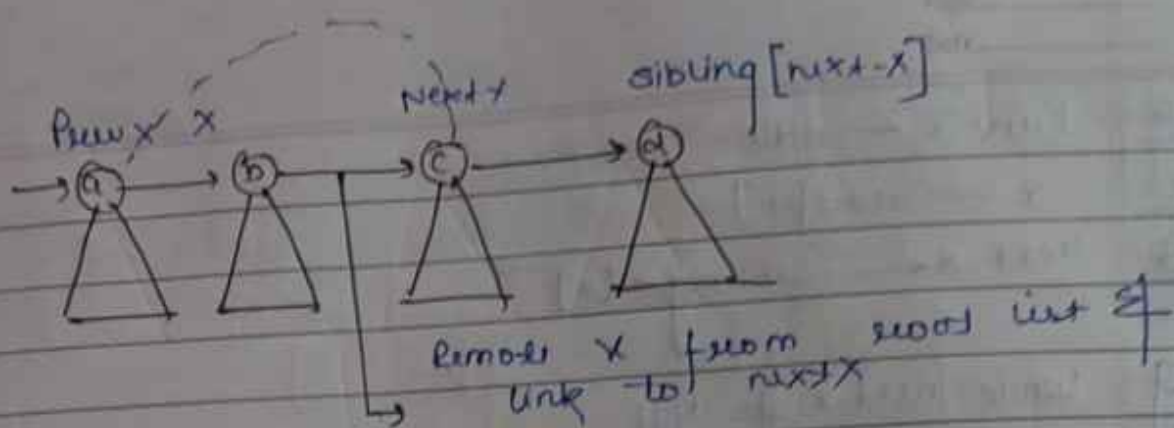 Prev X X Next X sibling [next-X]
a b c d
Remove X from root list &
link to next X